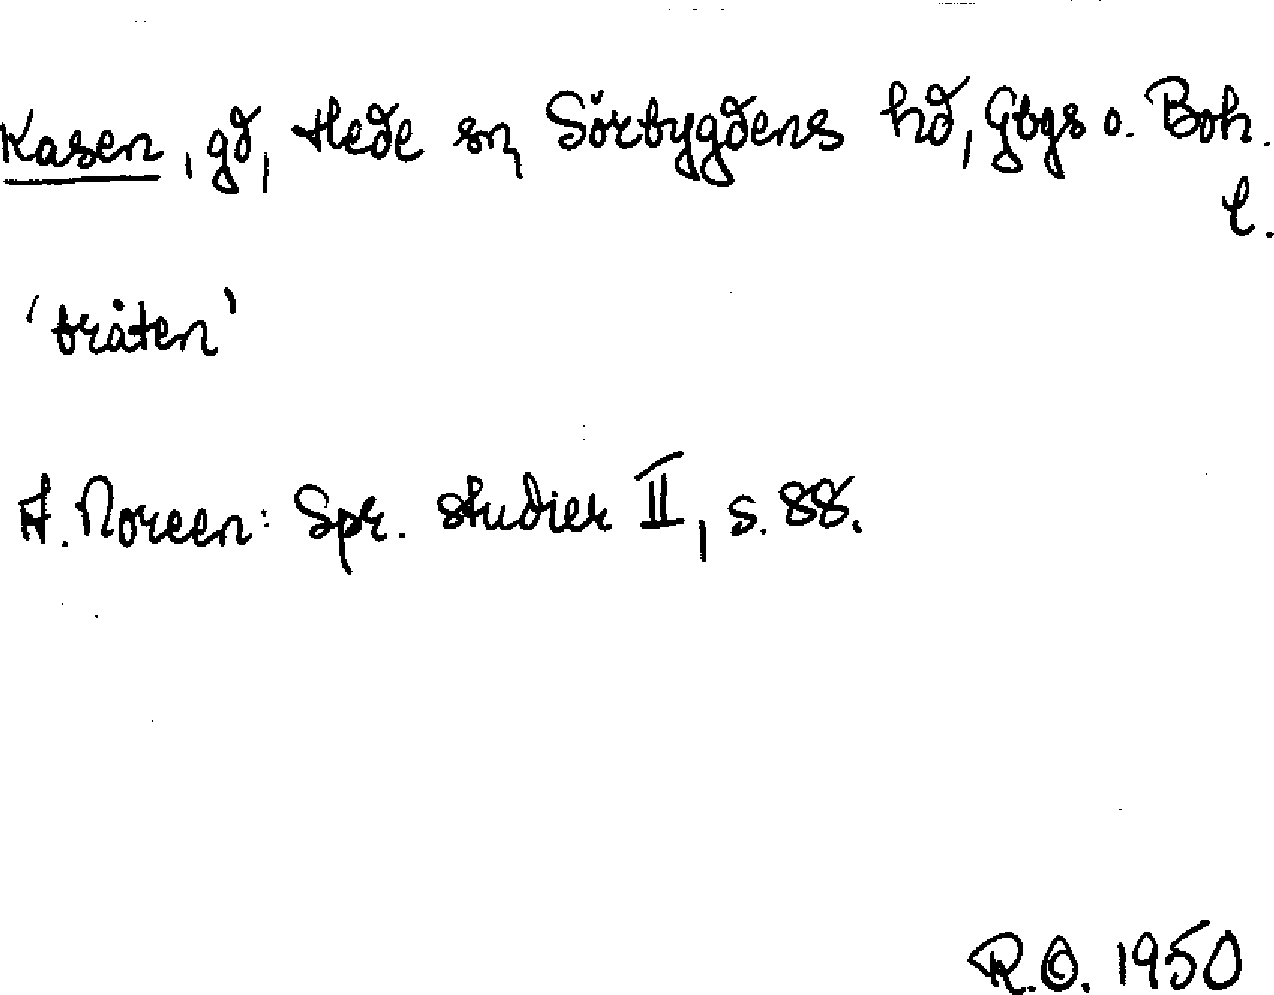 Kasen, gd, Hede sn, Sörbygdens hd, Gbgs o. Boh.
l.
'bråten'
A. Noreen: Spr. studier II, s. 88.
R.O. 1950